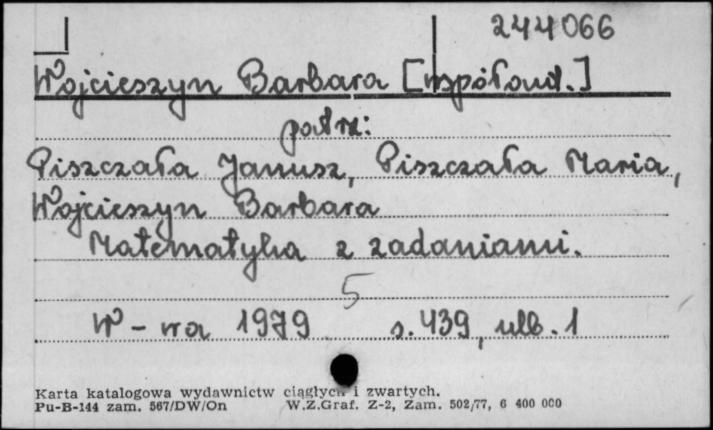 244066
Wojcieszyn Barbara [współaut.]
patrz:
Piszczała Janusz, Piszczała Maria,
Wojcieszyn Barbara
Matematyka z zadaniami.
5
W-wa 1979 s. 439, ulb. 1
Karta katalogowa wydawnictw ciągłych i zwartych.
Pu-B-144 zam. 567/DW/On W.Z.Graf. Z-2, Zam. 502/77, 6 400 000